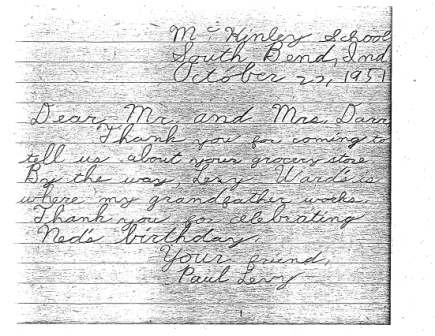 Mc Kinley School
South Bend, Ind
October 22, 1951
Dear Mr. and Mrs. Darr
Thank you for coming to
tell us about your grocery store
By the way, Levy Ward's is
where my grandfather works.
Thank you for celebrating
Ned's birthday.
Your friend,
Paul Levy